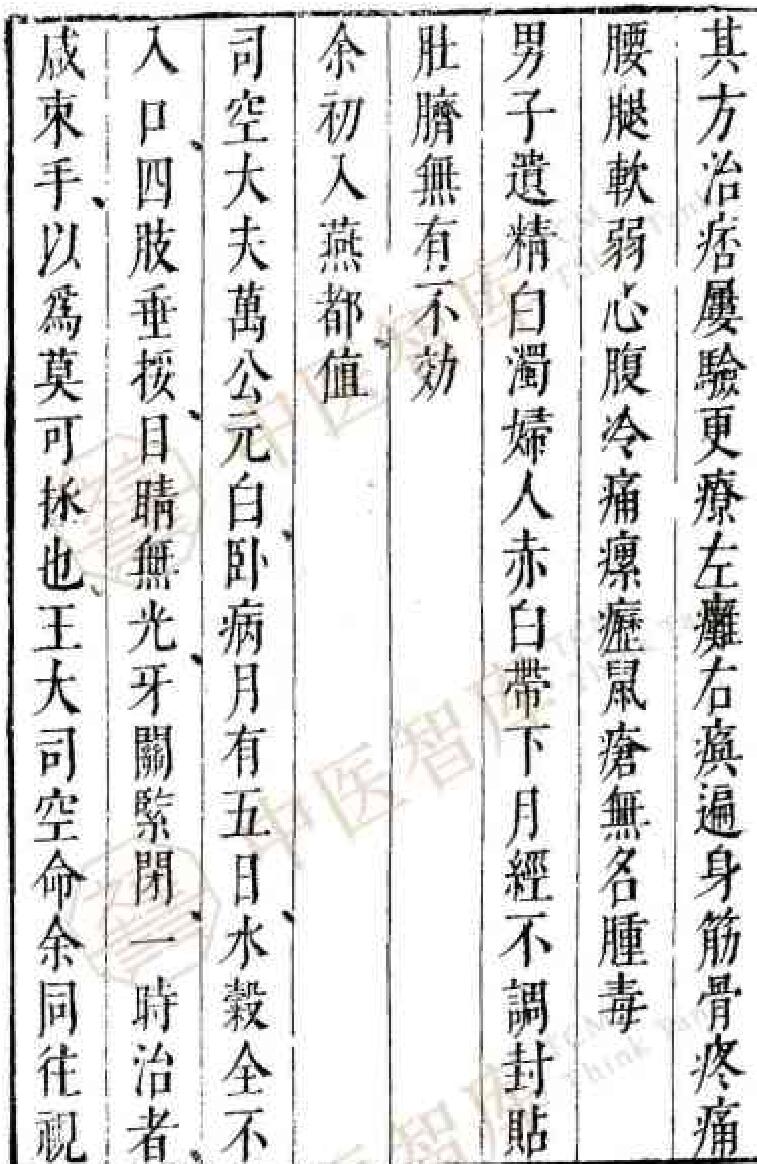 其方治痞屢驗更療左癱右瘓遍身筋骨疼痛
腰腿軟弱心腹冷痛瘰癧鼠瘡無名腫毒
男子遺精白濁婦人赤白帶下月經不調封貼
肚臍無有不効
余初入燕都值
司空大夫萬公元白卧病月有五日、水穀全不
入口、四肢垂挼、目睛無光、牙關緊閉、一時治者、
咸束手、以爲莫可拯也、王大司空命余同往視
中医智库
TCM Think Tank
中医智库
TCM Think Tank
中医智库
TCM Think Tank